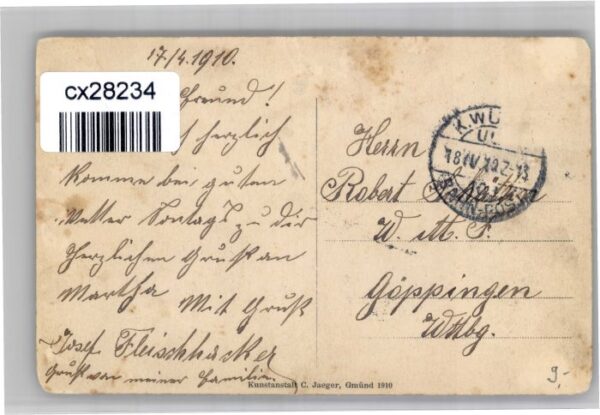 17/4.1910.
cx28234
Freund!
herzlich
komme bei gutem
Wetter Sontags zu dir
Herzlichen Gruß an
Martha Mit Gruß
Josef Fleischhacker
Gruß von meiner Familie.
Herrn
Robert
W. M. F.
Göppingen
Wttbg.
K.WÜ
BAHNPOST
Kunstanstalt C. Jaeger, Gmünd 1910
9,-